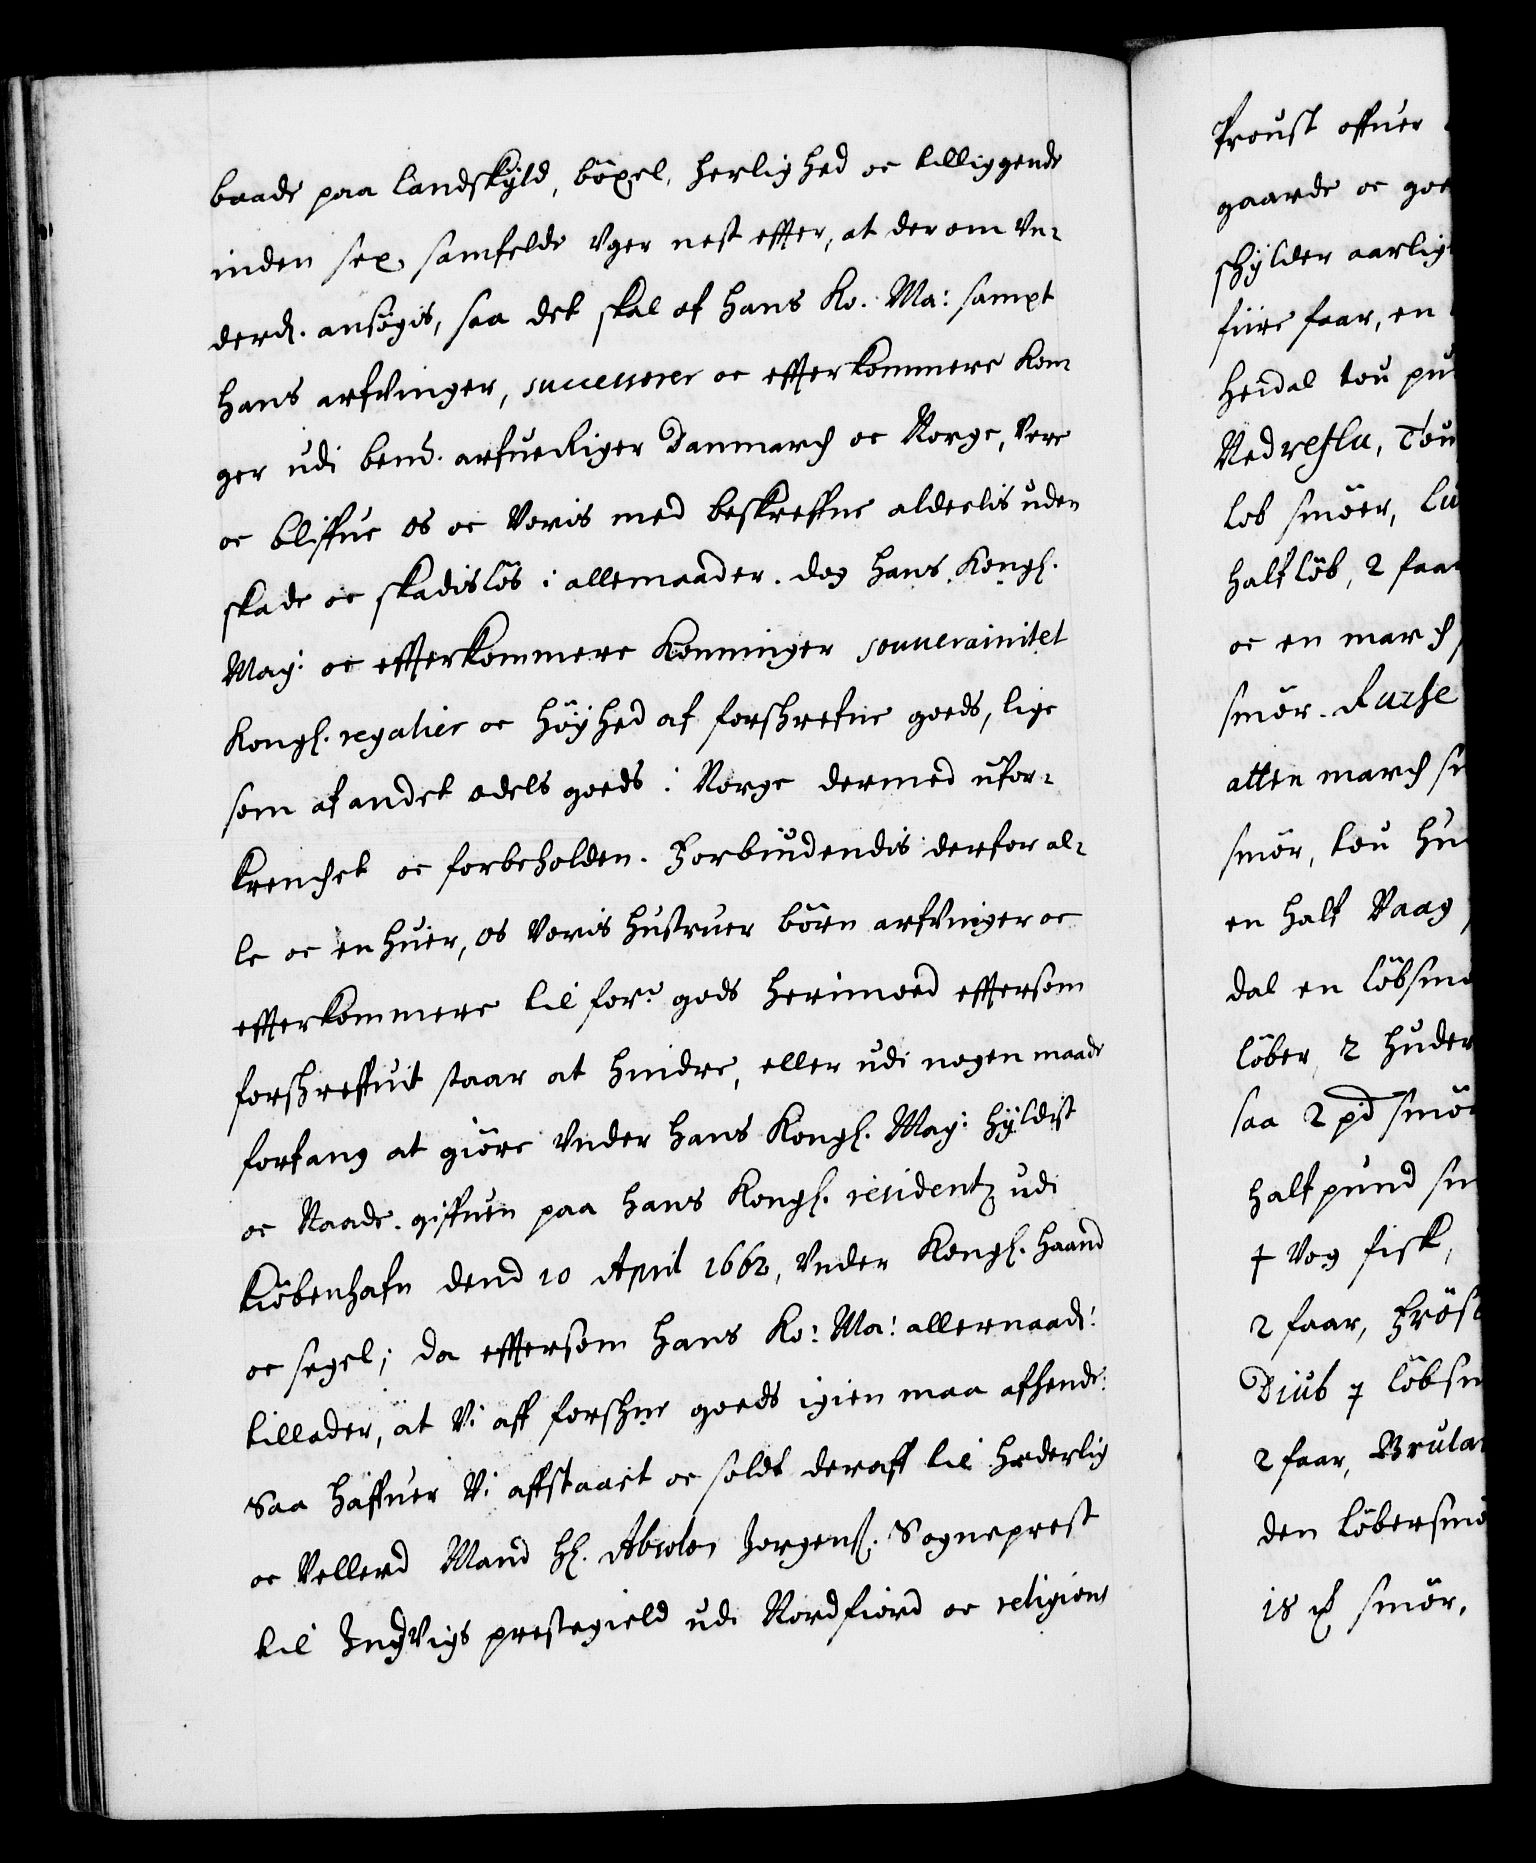 baade paa landskÿld, böxel, herlighed oc tilliggende
inden sex samfelde Vger nest effter, at der om Vn-
derd. ansögis, saa det skal af hans Ko. Ma: sampt
hans arfvinger, successorer oc efterkommere Kon-
ger udi bemd. arfueriger Danmarch oc Norge, Vere
oc bliffue os oc Voris med beskreffne aldeelis uden
skade oc skadislös i allemaader. dog hans Kongl.
May: oc effterkommere Konninger souverainitet
Kongl. regalier oc Höÿhed af forschrefne goeds, lige
som af andet odels goeds i Norge dermed ufor-
krenchet oc forbeholden. Forbiudendis derfor al-
le oc en huer, os Voris hustruer börn arfvinger oc
effterkommere til for:ne gods herimoed effersom
forschreffuit staar at hindre, eller udi nogen maade
forfang at giöre Vnder hans Kongl. May: hÿldist
oc Naade. giffuen paa hans Kongl. residentz udi
Kiöbenhafn dend 10 April 1662, Vnder Kongl. haand
oc segel; da effersom hans Ko: Ma: allernaad:
tillader, at Vi aff forschne goeds igien maa afhende:
Saa haffuer Vi affstaaet oc soldt deraff til Hæderlig
oc Vellerd Mand Hl. Absolon Jorgens. Sogneprest
til Indvigs prestegield udi Nordfiord oc religions
Proust offuer
gaarde oc
schÿlder
fiire faar, en
heidal tou
Nedreflu,
lob smöer,
half löb, 2
oc en march
smör.
atten march
smör, tou
en half Vaag
dal en
löber 2 huder
saa 2 pd
half pund
1 Vog fisk,
2 faar,
Diub
2 faar,
den
18 smör,